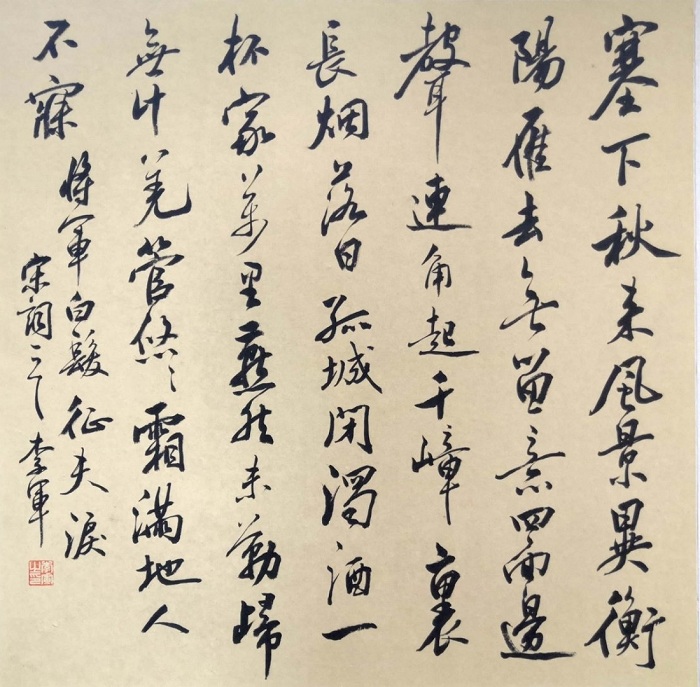 塞下秋来風景異衡
陽雁去無留意四面邊
聲連角起千嶂裏
長烟落日孤城閉濁酒一
杯家萬里燕然未勒歸
無計羌管悠〻霜滿地人
不寐
將軍白髮征夫淚
宋詞一首 李軍